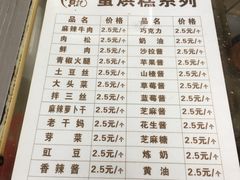 蛋烘糕系列
品名 价格 品名 价格
麻辣牛肉 2.5元/个 巧克力 2.5元/个
肉松 2.5元/个 奶油 2.5元/个
鲜肉 2.5元/个 沙拉酱 2.5元/个
青椒火腿 2.5元/个 苹果酱 2.5元/个
土豆丝 2.5元/个 山楂酱 2.5元/个
大头菜 2.5元/个 草莓酱 2.5元/个
拌三丝 2.5元/个 蓝莓酱 2.5元/个
麻辣萝卜干 2.5元/个 芝麻酱 2.5元/个
老干妈 2.5元/个 花生酱 2.5元/个
芽菜 2.5元/个 芝麻糖 2.5元/个
豇豆 2.5元/个 炼奶 2.5元/个
香辣酱 2.5元/个 黄油 2.5元/个